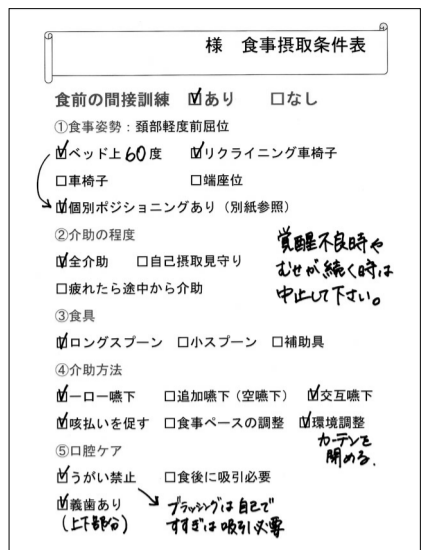 様 食事摂取条件表
食前の間接訓練 ☑あり □なし
①食事姿勢：頚部軽度前屈位
☑ベッド上60度 ☑リクライニング車椅子
□車椅子 □端座位
☑個別ポジショニングあり（別紙参照）
②介助の程度
☑全介助 □自己摂取見守り
□疲れたら途中から介助
覚醒不良時や
むせが続く時は
中止して下さい。
③食具
☑ロングスプーン □小スプーン □補助具
④介助方法
☑一口一嚥下 □追加嚥下（空嚥下） ☑交互嚥下
☑咳払いを促す □食事ペースの調整 ☑環境調整
カーテンを
閉める.
⑤口腔ケア
☑うがい禁止 □食後に吸引必要
☑義歯あり
(上下部分)
ブラッシングは自己で
すすぎは吸引必要